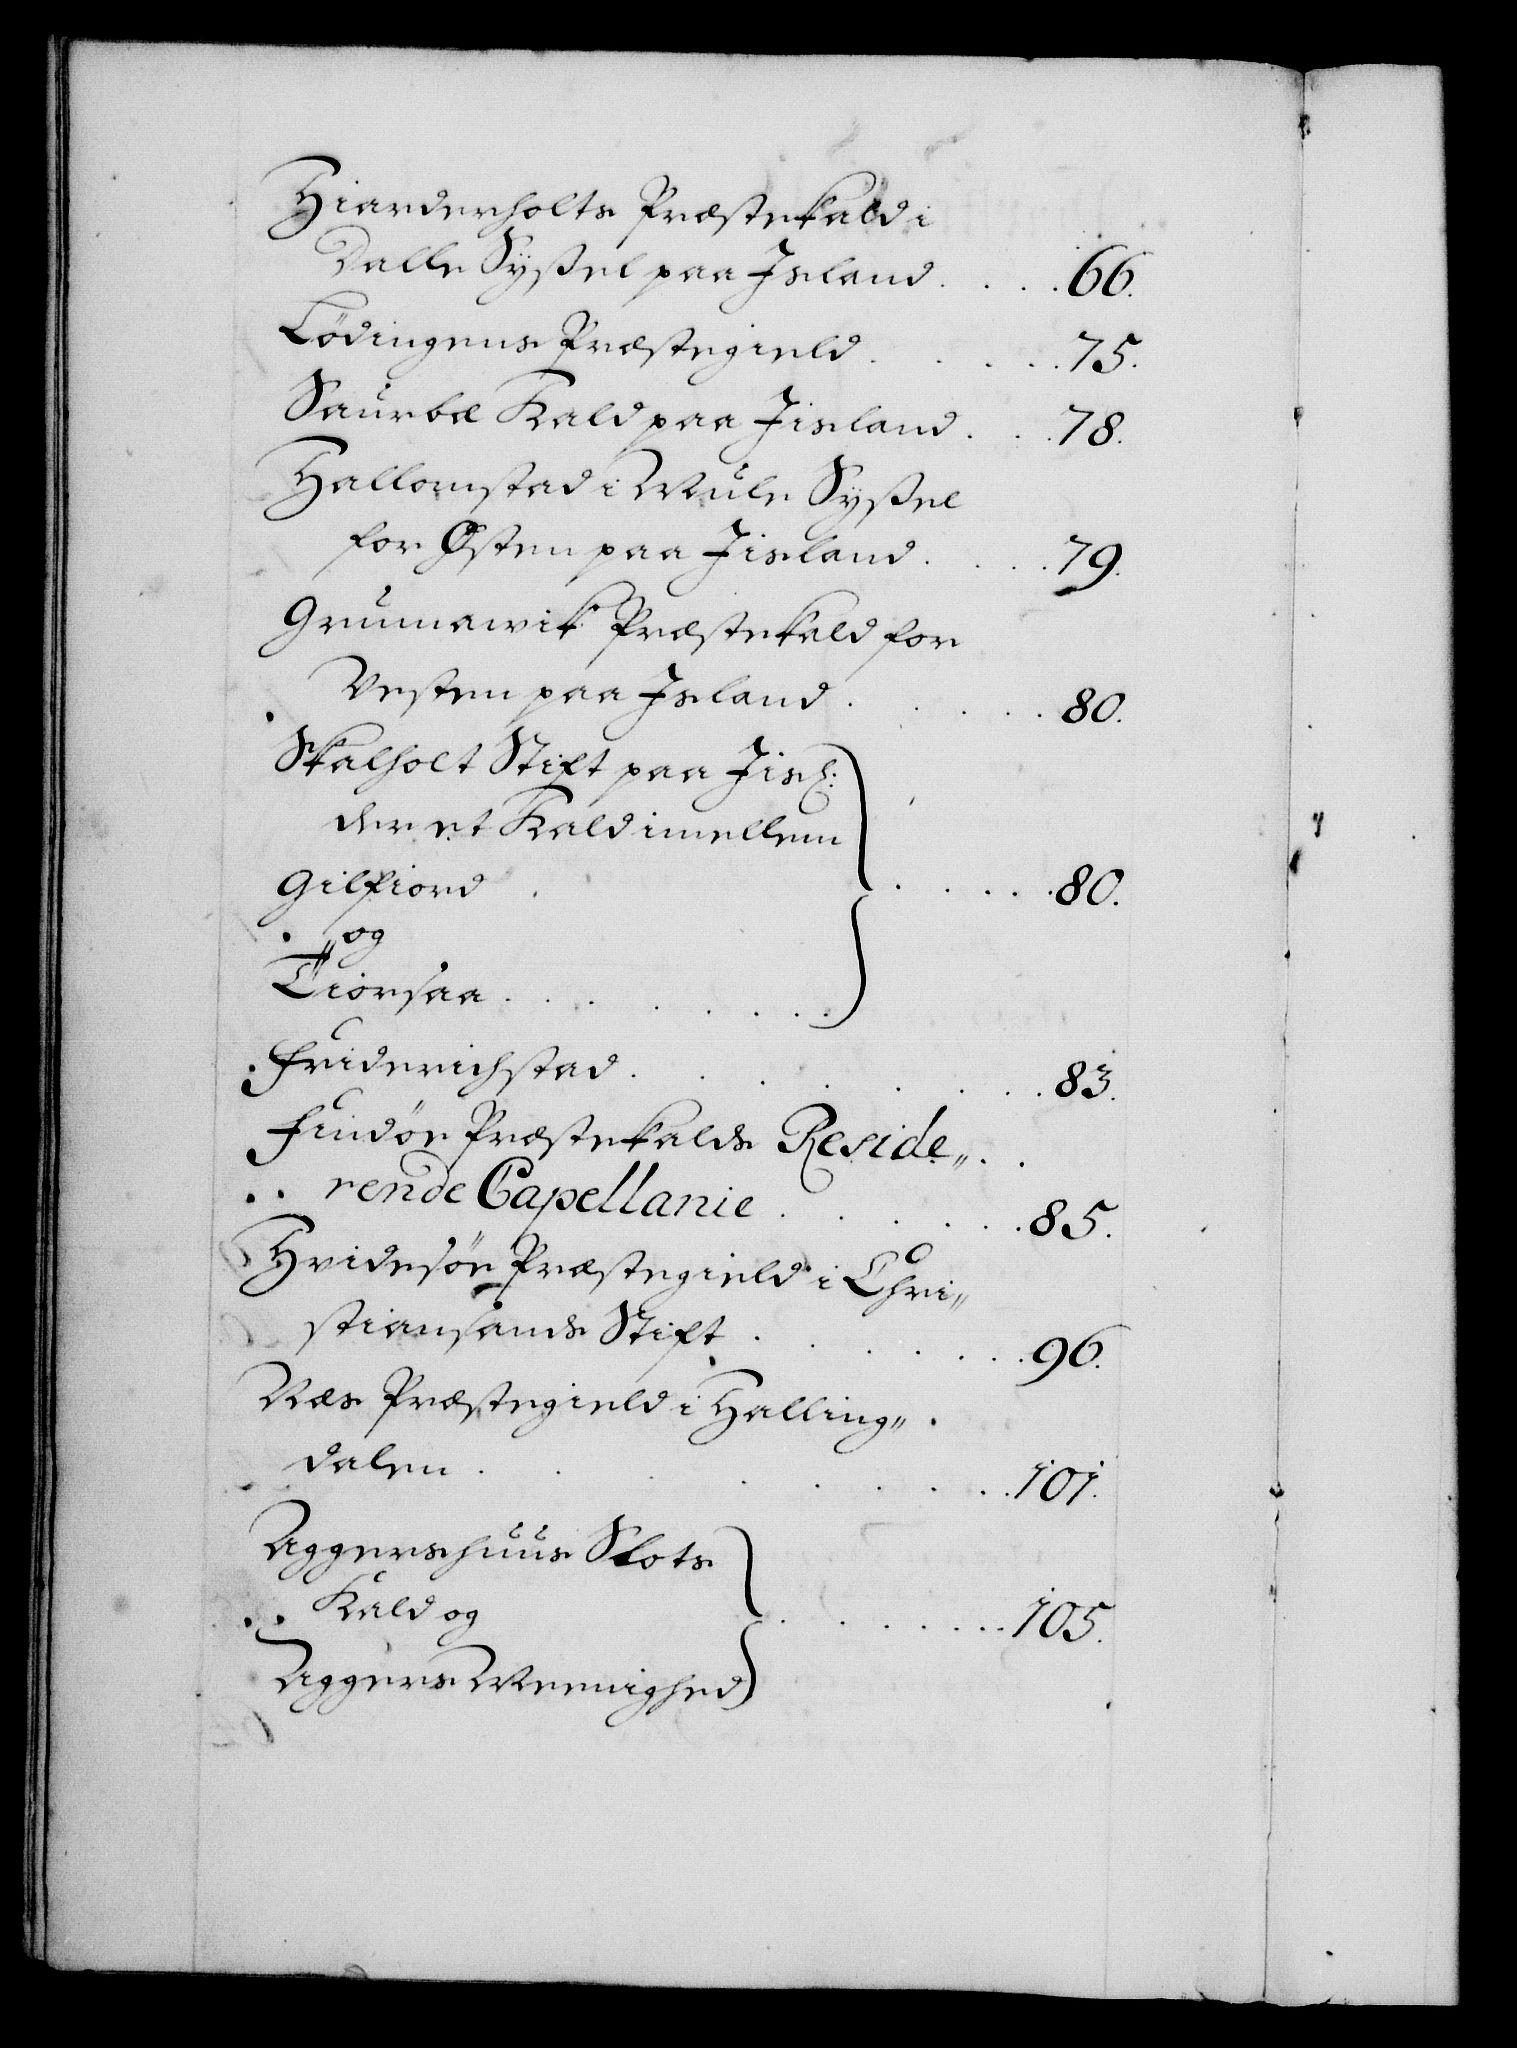 Hiarderholts Præstekald i
Dalle Syßel paa Island . . . . 66.
Lödingens Præstegield . . . . . 75.
Saurbæ Kald paa Jisland . . . 78.
Hallomstad i Mule Syßel
for Østen paa Jisland . . . . 79.
Grunnawik Præstekald for
Vesten paa Island . . . . . 80.
Skalholt Stift paa Jisl:
der et Kald imellem
Gilsfiord . . . . . 80.
og
Tiorsaa . . . . . . .
Friderichstad . . . . . . . . 83.
Findöe Præstekalds Reside„
rende Capellanie . . . . . . 85.
Hvidesöe Præstegield i Chri„
stiansands Stift . . . . . . 96.
Næs Præstegield i Halling„
dalen . . . . . . . . . 101.
Aggershuus Slots
Kald og . . . . . . . 105.
Aggers Meenighed